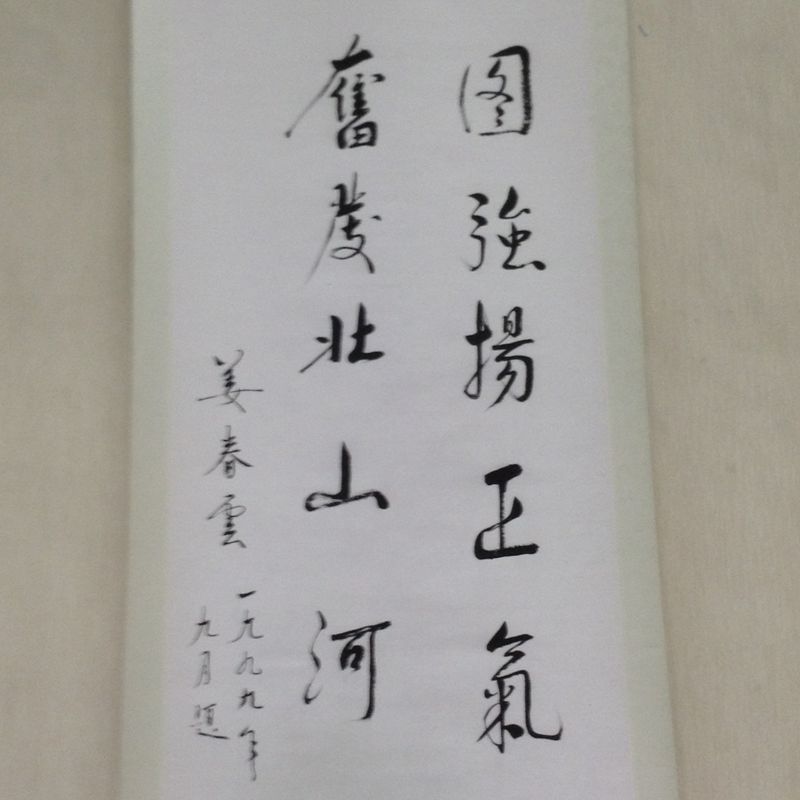 图強揚正氣
奮发壮山河
姜春雲
一九九九年
九月題